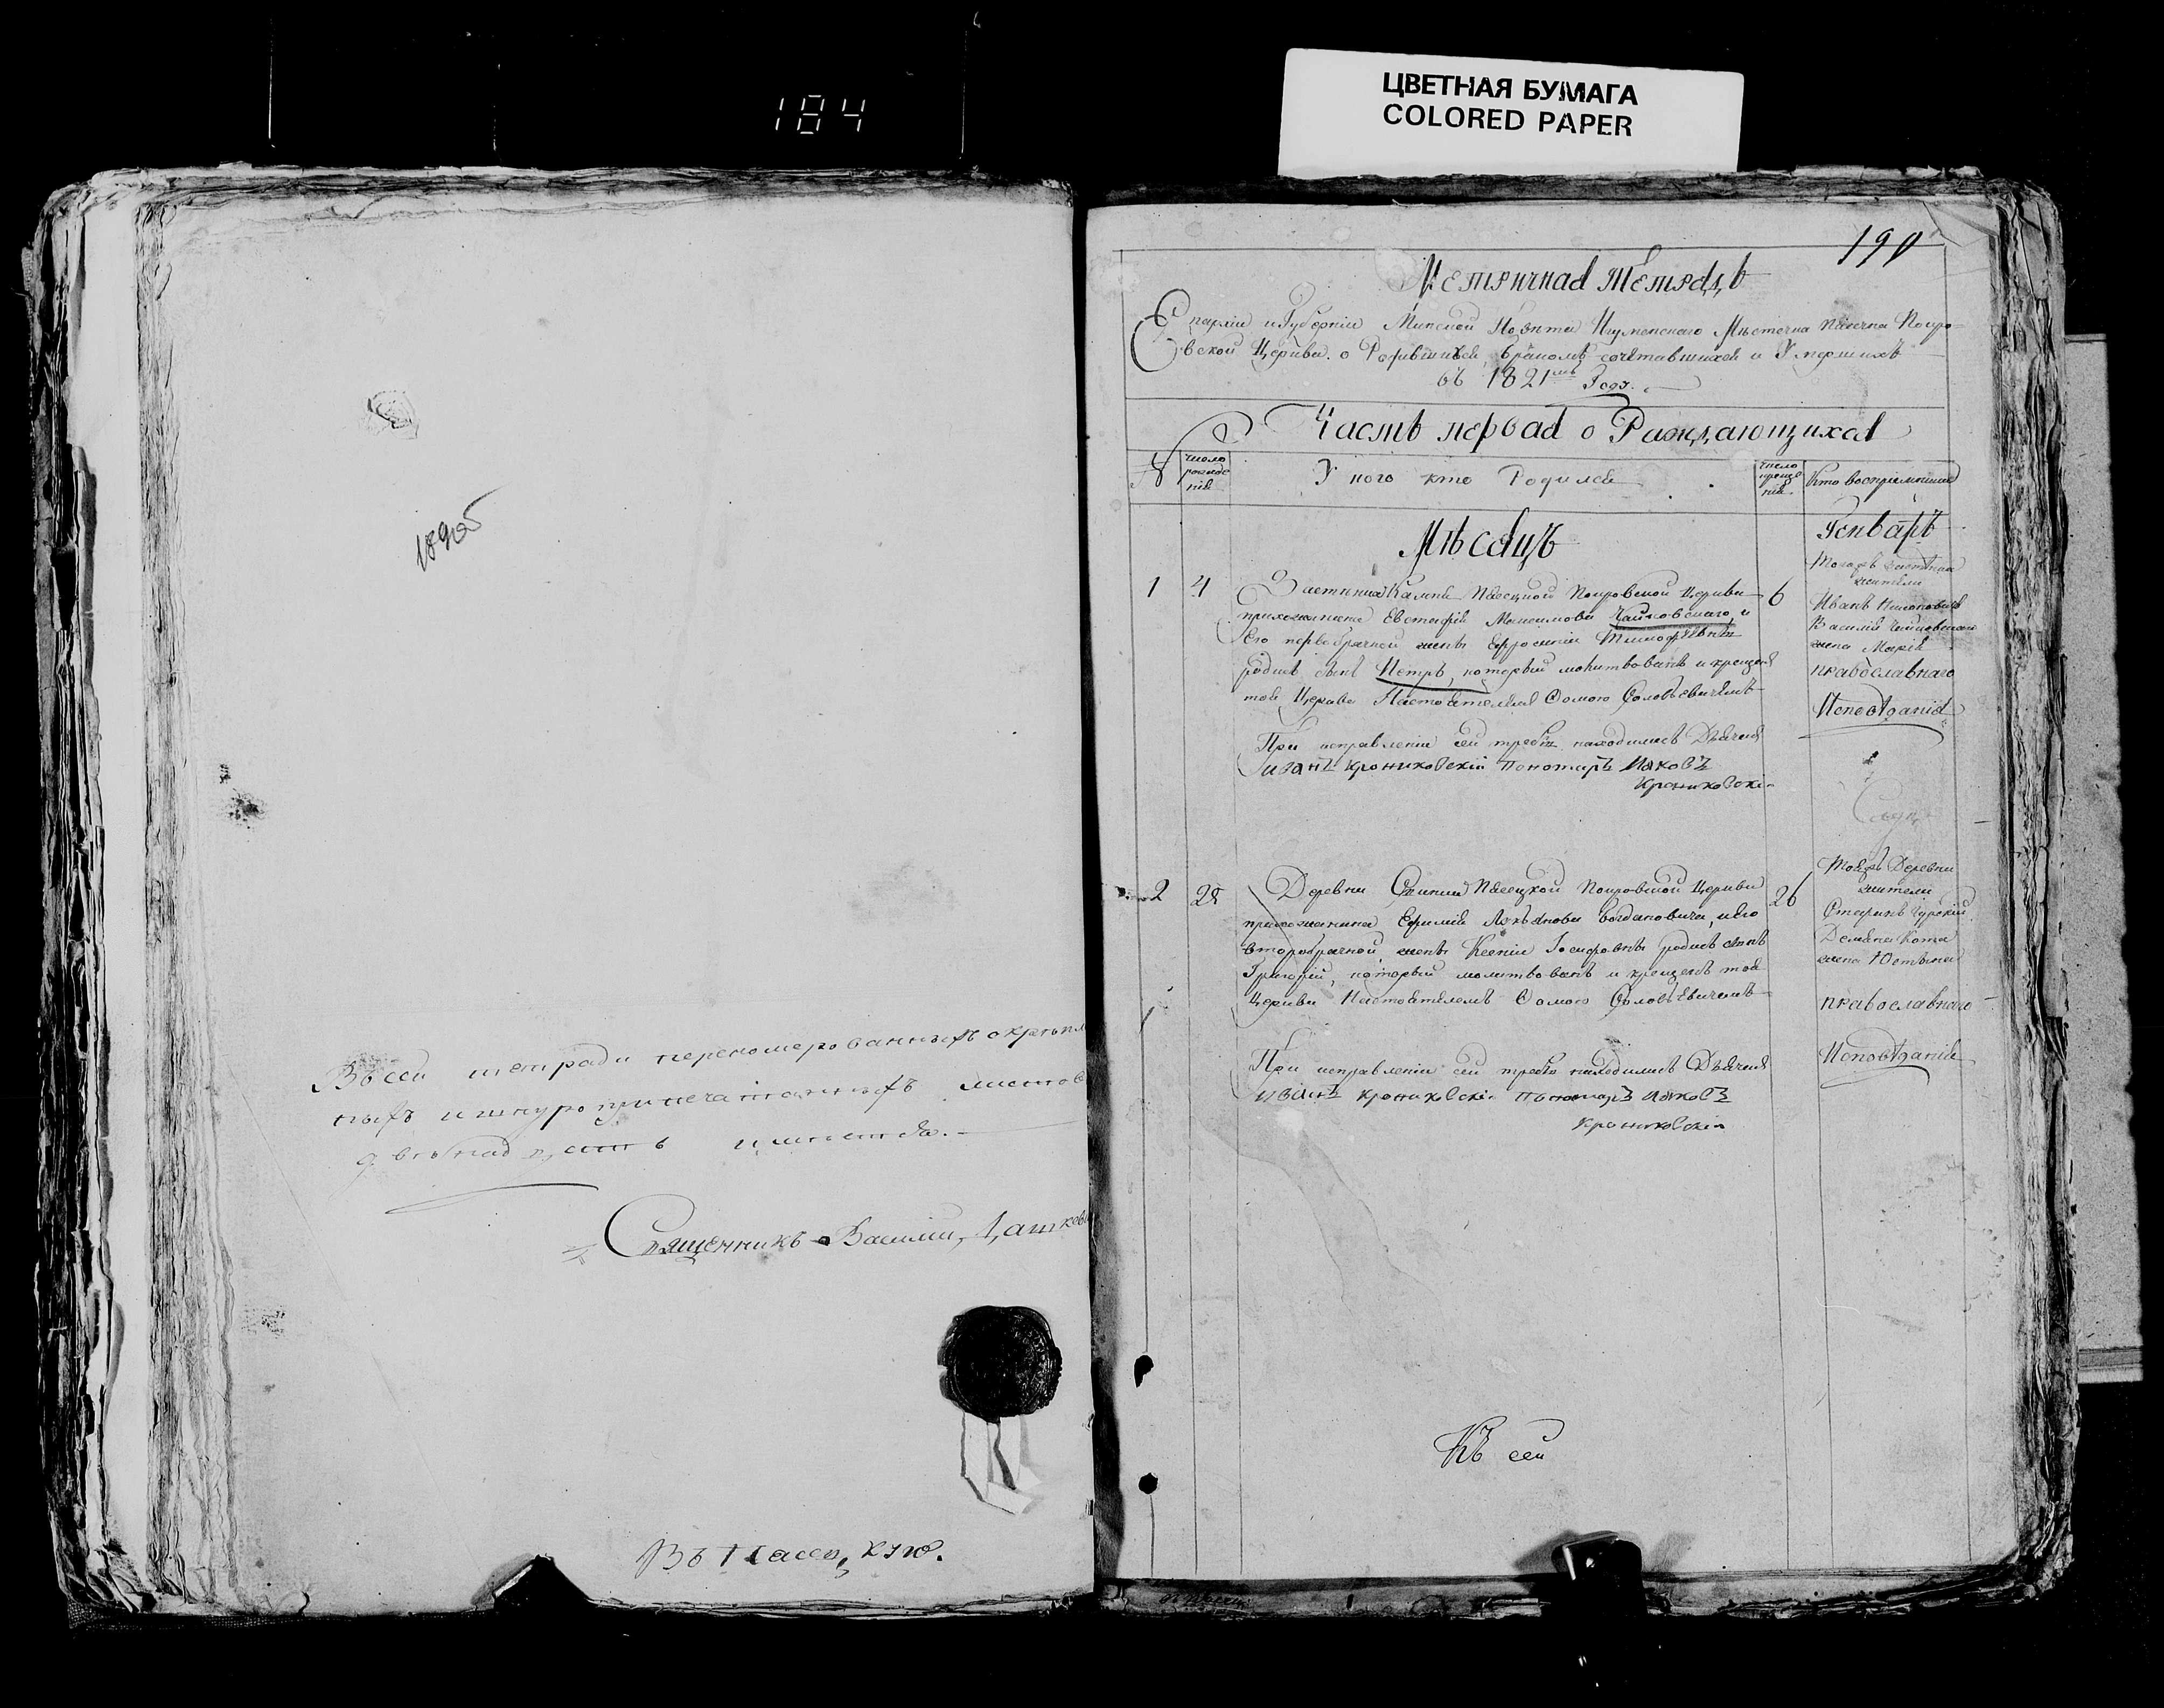 184
ЦВЕТНАЯ БУМАГА
COLORED PAPER
Въ сей тетради перекомерованныхъ скрепл
ныхъ и шнуроприпечатанныхъ листов
двенадцать
Священникъ Василий
190
Метричная Тетрадь
Епархіи и Губерніи Минской Повѣта Игуменскаго Мѣстечка Покро
вской Церкви о Родившихся, бракомъ сочетавшихся и Умершихъ
въ 1821мъ Году.
Часть первая о Раждающихся
№ число рожде нія У кого кто Родился число креще нія Кто воспріемники
Мѣсяцъ Генварь
1 4 6
Застѣнка Покровской Церкви
прихожанина Евстафія Максимова Чайковскаго, и
Его первобрачной жены Ефросиніи Тимофѣевны
родися сынъ Петръ, который молитвованъ и крещенъ
той Церкви Настоятелемъ Фомою Соловьевичемъ
При исправленіи сей требы находились Дьячекъ
иванъ крониковскій пономарь Иаковъ
крониковскій
жители
Иванъ
Василія Чайковскаго
жена Марія
православнаго
Исповѣданія
2 25 26
Деревни Покровской Церкви
прихожанина Ефимія Богдановича, и Его
второбрачной жены Ксеніи Іосифовны родися сынъ
Григорій, который молитвованъ и крещенъ той
Церкви Настоятелемъ Фомою Соловьевичемъ
При исправленіи сей требы находились Дьячекъ
иванъ крониковскій пономарь Иаковъ
крониковскій
Деревни
жители
Демяна Кота
жена Юстына
православнаго
Исповѣданія
Къ сей